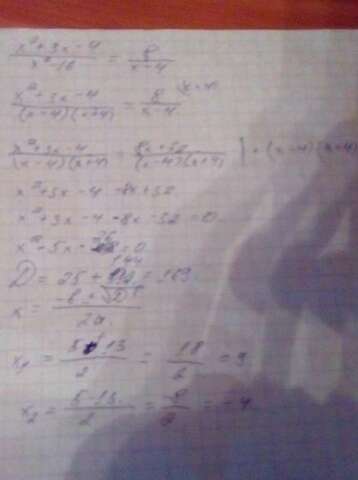 x²+3x-4 / x²-16 = 8 / x-4
x²+3x-4 / (x-4)(x+4) = 8 / x-4 (x+4)
x²+3x-4 / (x-4)(x+4) = 8x+32 / (x-4)(x+4) | · (x-4)(x+4)
x²+3x-4 = 8x+32
x²+3x-4-8x-32=0
x²-5x-36=0
D = 25+144=169
x = -b±√D / 2a
x₁ = 5+13 / 2 = 18 / 2 = 9
x₂ = 5-13 / 2 = -8 / 2 = -4